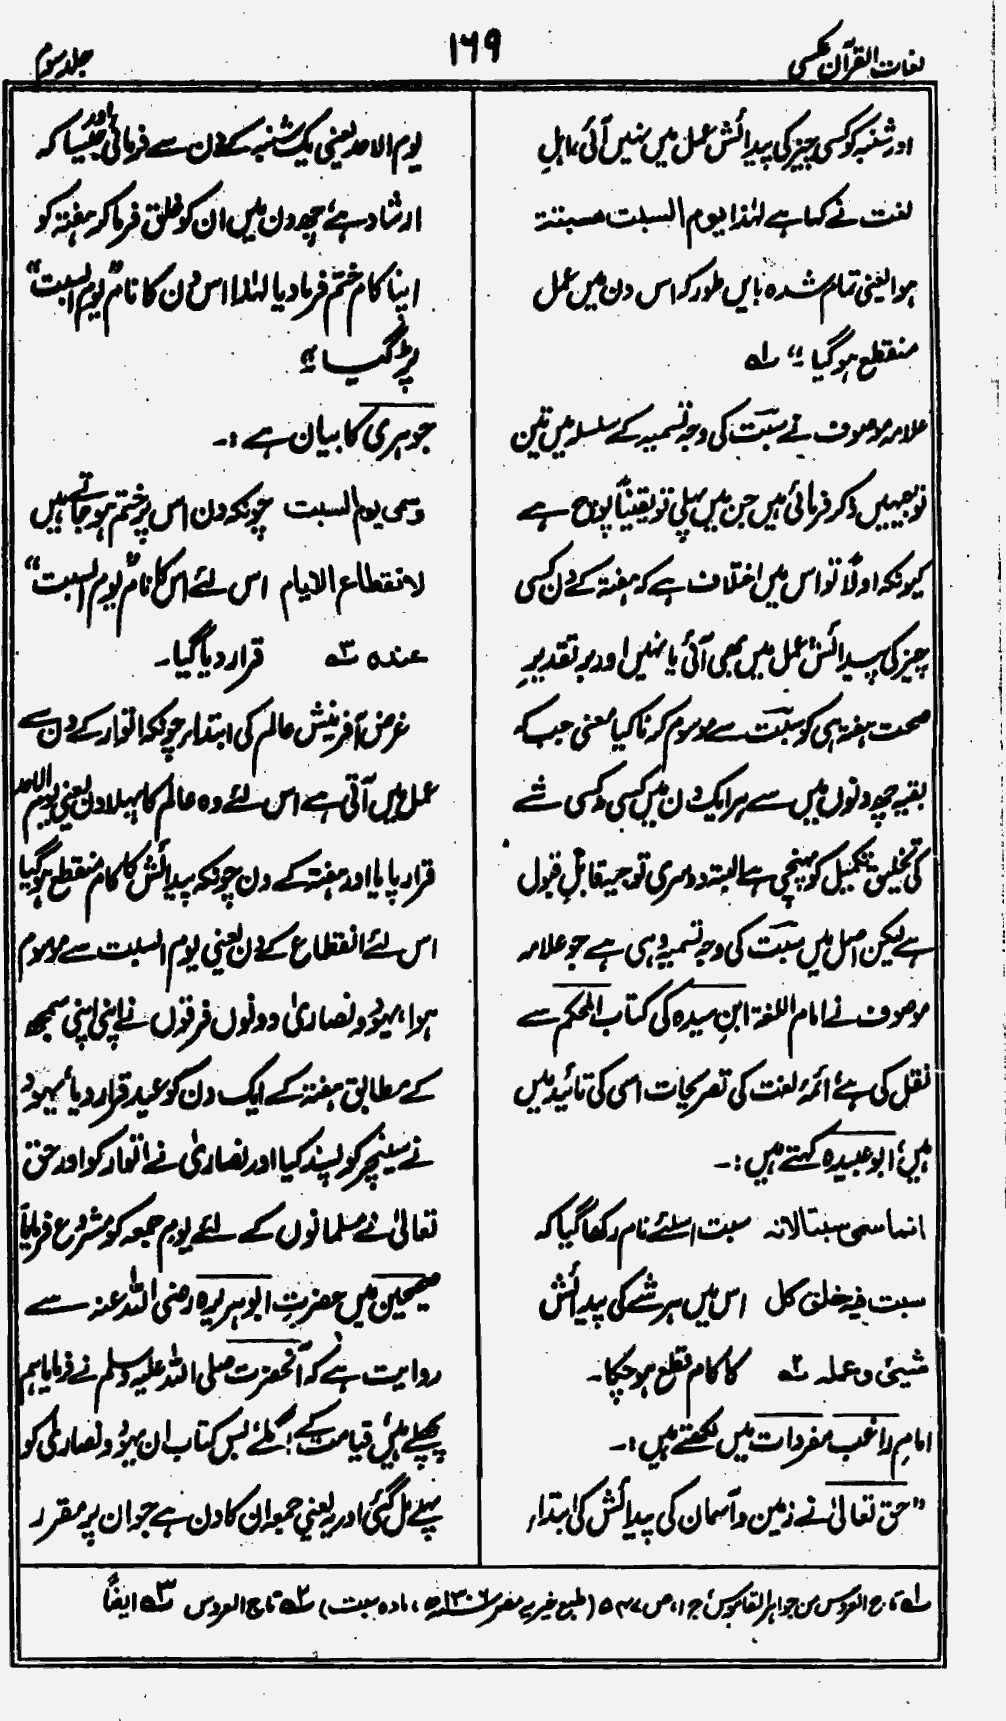 لغات القرآن عکسی
۱۶۹
جلد سوم
اور شنبہ کو کسی چیز کی پیدائش عمل میں نہیں آئی، اہلِ
لغت نے کہا ہے لہٰذا یوم السبت مسبتتہ
ہوا یعنی تمام شدہ بایں طور کہ اس دن میں عمل
منقطع ہو گیا ۔" ۱ھ
علامہ موصوف نے سَبت کی وجہ تسمیہ کے سلسلہ میں تین
توجیہیں ذکر فرمائی ہیں جن میں پہلی تو یقیناً پوچ ہے
کیونکہ اولاً تو اس میں اختلاف ہے کہ ہفتہ کے دن کسی
چیز کی پیدائش عمل میں بھی آئی یا نہیں اور بر تقدیرِ
صحت ہفتہ ہی کو سَبت سے موسوم کرنا کیا معنی جب کہ
بقیہ چھ دنوں میں سے ہر ایک دن میں کسی نہ کسی شے
کی تخلیق تکمیل کو پہنچی ہے البتہ دوسری توجیہ قابلِ قبول
ہے لیکن اصل میں سَبت کی وجہ تسمیہ وہی ہے جو علامہ
موصوف نے امام اللغۃ ابنِ سیدہ کی کتاب المحکم سے
نقل کی ہے، ائمۂ لغت کی تصریحات اسی کی تائید میں
ہیں، ابو عبیدہ کہتے ہیں :۔
انما سمی سبتا لانہ سبت اسلئے نام رکھا گیا کہ
سبت فیہ خلق کل اس میں ہر شے کی پیدائش
شیئی وعملہ ۲ھ کا کام قطع ہو چکا۔
امام راغب مفردات میں لکھتے ہیں :۔
"حق تعالیٰ نے زمین و آسمان کی پیدائش کی ابتداء
یوم الاحد یعنی یک شنبہ کے دن سے فرمائی اور جیسا کہ
ارشاد ہے، چھ دن میں ان کو خلق فرما کر ہفتہ کو
اپنا کام ختم فرما دیا لہٰذا اس دن کا نام "یوم السبت"
پڑ گیا ۔"
جوہری کا بیان ہے :۔
وسمی یوم السبت چونکہ دن اس پر ختم ہو جاتے ہیں
لانقطاع الایام اس لئے اس کا نام "یوم السبت"
عندہ ۳ھ قرار دیا گیا۔
غرض آفرینش عالم کی ابتداء چونکہ اتوار کے دن سے
عمل میں آتی ہے اس لئے وہ عالم کا پہلا دن یعنی یوم الاحد
قرار پایا اور ہفتہ کے دن چونکہ پیدائش کا کام منقطع ہو گیا
اس لئے انقطاع کے دن یعنی یوم السبت سے موسوم
ہوا، یہود و نصاریٰ دونوں فرقوں نے اپنی اپنی سمجھ
کے مطابق ہفتہ کے ایک دن کو عید قرار دیا، یہود
نے سینچر کو پسند کیا اور نصاریٰ نے اتوار کو اور حق
تعالیٰ نے مسلمانوں کے لئے یوم جمعہ کو مشروع فرمایا،
صحیحین میں حضرت ابو ہریرہ رضی اللہ عنہ سے
روایت ہے کہ آنحضرت صلی اللہ علیہ وسلم نے فرمایا ہم
پچھلے ہیں، قیامت کے اگلے بس کتاب ان یہود و نصاریٰ کو
پہلے مل گئی اور یہ یعنی جمعہ ان کا دن ہے جو ان پر مقرر
۱ھ تاج العروس من جواہر القاموس، ج ۱، ص ۵۴۷ (طبع خیریہ مصر ۱۳۰۶ھ، مادہ سبت) ۲ھ تاج العروس ۳ھ ایضاً